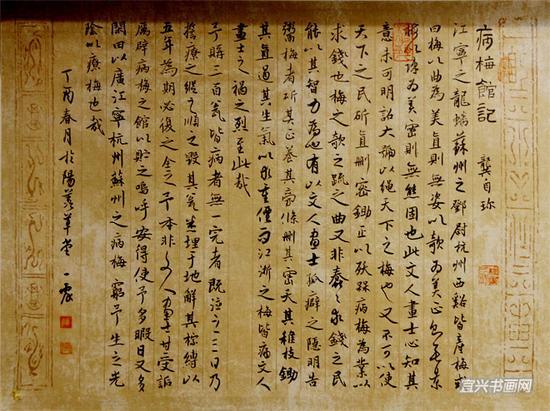 病梅館記
龔自珍
江寧之龍蟠蘇州之鄧尉杭州西谿皆產梅或
曰梅以曲為美直則無姿以欹為美正則無景
梅以疎為美密則無態固也此文人畫士心知其
意未可明詔大號以繩天下之梅也又不可以使
天下之民斫直刪密鋤正以殀梅病梅為業以
求錢也梅之欹之疏之曲又非蠢蠢求錢之民
能以其智力為也有以文人畫士孤癖之隱明告
鬻梅者斫其正養其旁條刪其密夭其稚枝鋤
其直遏其生氣以求重價而江浙之梅皆病文人
畫士之禍之烈至此哉
予購三百盆皆病者無一完者既泣之三日乃
誓療之縱之順之毀其盆悉埋于地解其棕縛以
五年為期必復之全之予本非文人畫士甘受詬
厲闢病梅之館以貯之嗚呼安得使予多暇日又多
閒田以廣江寧杭州蘇州之病梅窮予生之光
陰以療梅也哉
丁酉春月於陽羨草堂
宜兴书画网